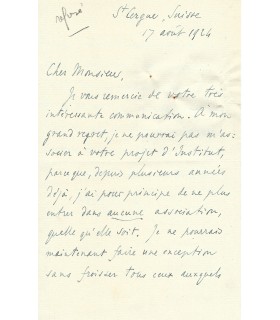 refusé
St Cergue, Suisse
17 août 1924
Cher Monsieur,
Je vous remercie de votre très
intéressante communication. À mon
grand regret, je ne pourrai pas m'as-
socier à votre projet d'Institut,
parce que, depuis plusieurs années
déjà, j'ai pour principe de ne plus
entrer dans aucune association,
quelle qu'elle soit. Je ne pourrais
maintenant faire une exception
sans froisser tous ceux auxquels